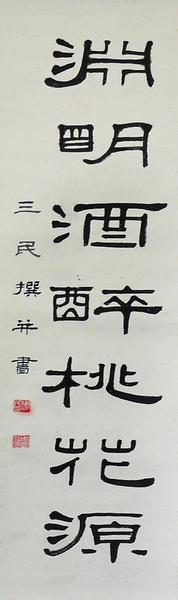 淵明酒醉桃花源
三民撰并書